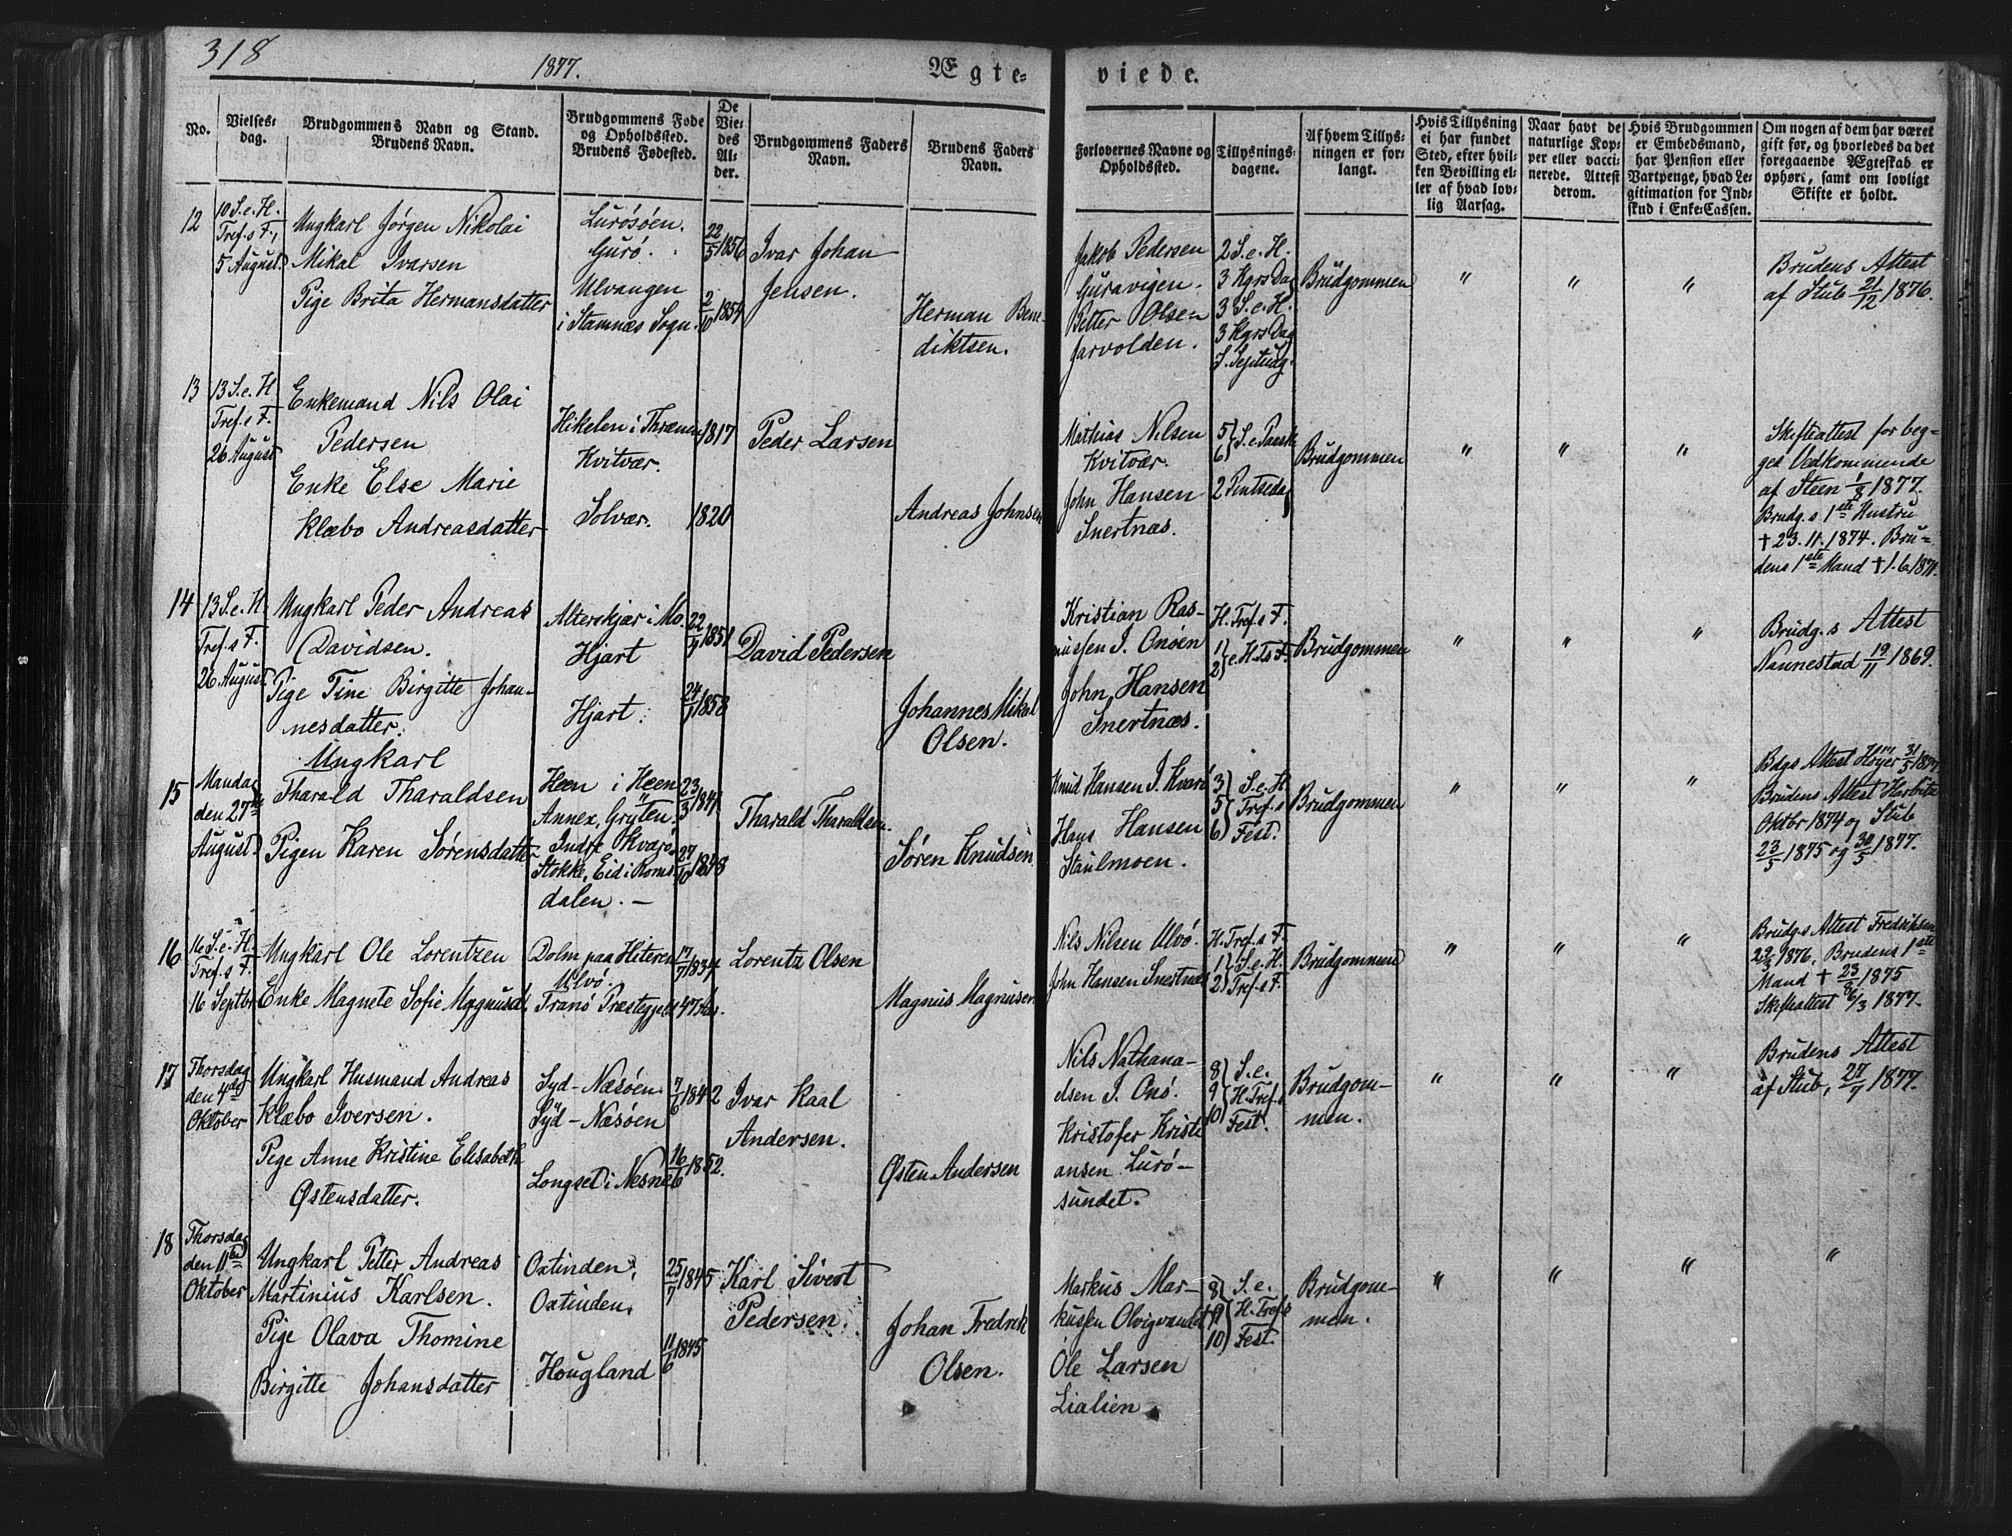 318
1877.
Ægte-
viede.
No.
Vielses-
dag.
Brudgommens Navn og Stand.
Brudens Navn.
Brudgommens Føde
og Opholdssted.
Brudens Fødested.
De
Vie-
des
Al-
der.
Brudgommens Faders
Navn.
Brudens Faders
Navn.
Forlovernes Navne og
Opholdssted.
Tillysnings-
dagene.
Af hvem Tillys-
ningen er for-
langt.
Hvis Tillysning
ei har fundet
Sted, efter hvil-
ken Bevilling el-
ler af hvad lov-
lig Aarsag.
Naar havt de
naturlige Kop-
per eller vacci-
nerede. Attest
derom.
Hvis Brudgommen
er Embedsmand,
har Pension eller
Vartpenge, hvad Le-
gitimation for Ind-
skud i Enke-Cassen.
Om nogen af dem har været
gift før, og hvorledes da det
foregaaende Ægteskab er
ophørt, samt om lovligt
Skifte er holdt.
12
10 S. e. H.
Tref.s F.,
5 August
Ungkarl Jørgen Nikolai
Mikal Ivarsen
Pige Brita Hermansdatter
Lurøsøen.
Gurø.
Ulvangen
i Stamnæs Sogn.
22/5 1856
2/10 1854
Ivar Johan
Jensen.
Herman Bene-
diktsen.
Jakob Pedersen
Guravigen.
Petter Olsen
Jarvolden.
2 S. e. H.
3 Kgrs Dag
3 S. e. H.
3 Kgrs Dag
Brudgommen
" " "
Brudens Attest
af Stub 21/12 1876.
13
13 S. e. H
Tref.s F.
26 August
Enkemand Nils Olai
Pedersen
Enke Else Marie
Klæbo Andreasdatter
Hikelen i Thrænen
Kvitvær.
Solvær.
1817
1820
Peder Larsen
Andreas Johnsen
Mathias Nilsen
Kvitvær.
John Hansen
Snertnæs.
5
6 } S. e. Paaske
2 Pintsedag
Brudgommen
" " "
Skifteattest for beg-
ges Vedkommende
af Steen 1/8 1877.
Brudg.s 1ste Hustru
† 23.11.1874. Bru-
dens 1ste Mand † 1.6.1871.
14
13 S. e. H
Tref.s F.
26 August
Ungkarl Peder Andreas
Davidsen.
Pige Tine Birgitte Johan-
nesdatter.
Alterskjær i Mo.
Hjart
Hjart.
22/4 1851
24/7 1858
David Pedersen
Johannes Mikal
Olsen.
Kristian Ras-
mussen I. Onøen
John Hansen
Snertnæs.
H. Tref.s F.
1
2 } e. H. Ts F.
Brudgommen
" " "
Brudg.s Attest
Nannestad 19/11 1869.
15
Mandag
den 27de
August
Ungkarl
Tharald Tharaldsen
Pigen Karen Sørensdatter
Heen i Heen
Annex, Gryten.
Indre Kvarø
Stokke, Eid i Roms-
dalen. -
23/3 1841
27/10 1848
Tharald Tharaldsen.
Søren Knudsen.
Knud Hansen I. Kvarø
Hans Hansen
Staulmoen.
3
5
6 } S. e. H
Tref.s
Fest.
Brudgommen
" " "
Bdgs Attest Høyer 31/5 1877
Brudens Attest
Oktbr 1874 og Stub
23/5 1875 og 30/5 1877.
16
16 S. e. H.
Tref.s F.
16 Septbr
Ungkarl Ole Lorentzen
Enke Magnete Sofie Magnusd.
Dolm paa Hiteren
Ulvø.
Tranø Præstegjeld
17/7 1834
47 Aar.
Lorentz Olsen
Magnus Magnusen
Nils Nilsen Ulvø.
John Hansen Snertnæs
H. Tref.s F.
1
2 } S. e. H.
Tref.s F.
Brudgommen
" " "
Brudg.s Attest Fredriksen
22/3 1876, Brudens 1ste
Mand † 23/3 1875
Skifteattest 6/3 1877.
17
Thorsdag
den 4de
Oktober
Ungkarl Husmand Andreas
Klæbo Iversen.
Pige Anne Kristine Elisabeth
Østensdatter.
Syd-Næsøen
Syd-Næsøen
Longset i Nesne
7/6 1842
16/6 1852.
Ivar Kaal
Andersen.
Østen Andersen
Nils Nathana-
elsen I. Onø.
Kristofer Kristi-
ansen Lurø-
sundet.
8
9
10 } S. e.
H. Tref.s
Fest.
Brudgom-
men.
" " "
Brudens Attest
af Stub, 27/7 1877.
18
Thorsdag
den 11te
Oktober
Ungkarl Petter Andreas
Martinius Karlsen.
Pige Olava Thomine
Birgitte Johansdatter
Oxtinden,
Oxtinden,
Hougland
25/7 1845
11/6 1845
Karl Sivert
Pedersen.
Johan Fredrik
Olsen.
Markus Mar-
kussen Olvigvandet
Ole Larsen
Lialien
8
9
10 } S. e.
H. Tref.s
Fest.
Brudgom-
men.
" " " "